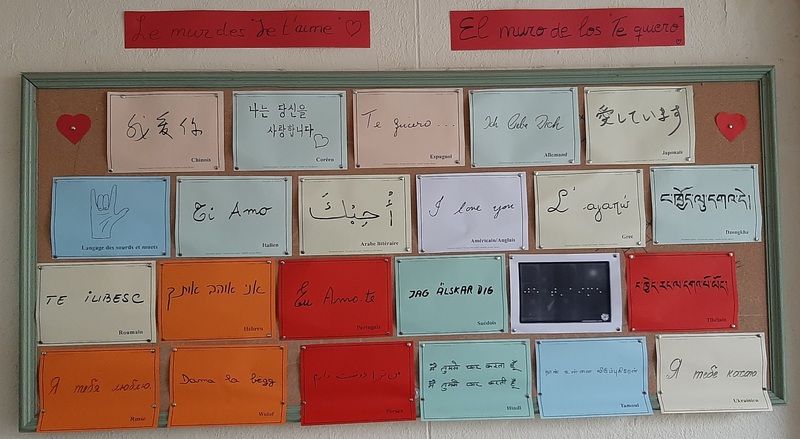 Le mur des "Je t'aime"
El muro de los "Te quiero"
我爱你
Chinois
나는 당신을
사랑합니다
Coréen
Te quiero...
Espagnol
Ich liebe Dich
Allemand
愛しています
Japonais
Langage des sourds et muets
Ti Amo
Italien
أُحِبُّكَ
Arabe littéraire
I love you
Américain/Anglais
Σ' αγαπώ
Grec
Dzongkha
TE IUBESC
Roumain
אני אוהב אותך
Hébreu
Eu Amo-te
Portugais
JAG ÄLSKAR DIG
Suédois
Tibétain
Я тебя люблю
Russe
Dama la begg
Wolof
من ترا دوست دارم
Persan
मैं तुमसे प्यार करता हूँ
मैं तुमसे प्यार करती हूँ
Hindi
நான் உன்னை விரும்புகிறேன்
Tamoul
Я тебе кохаю
Ukrainien